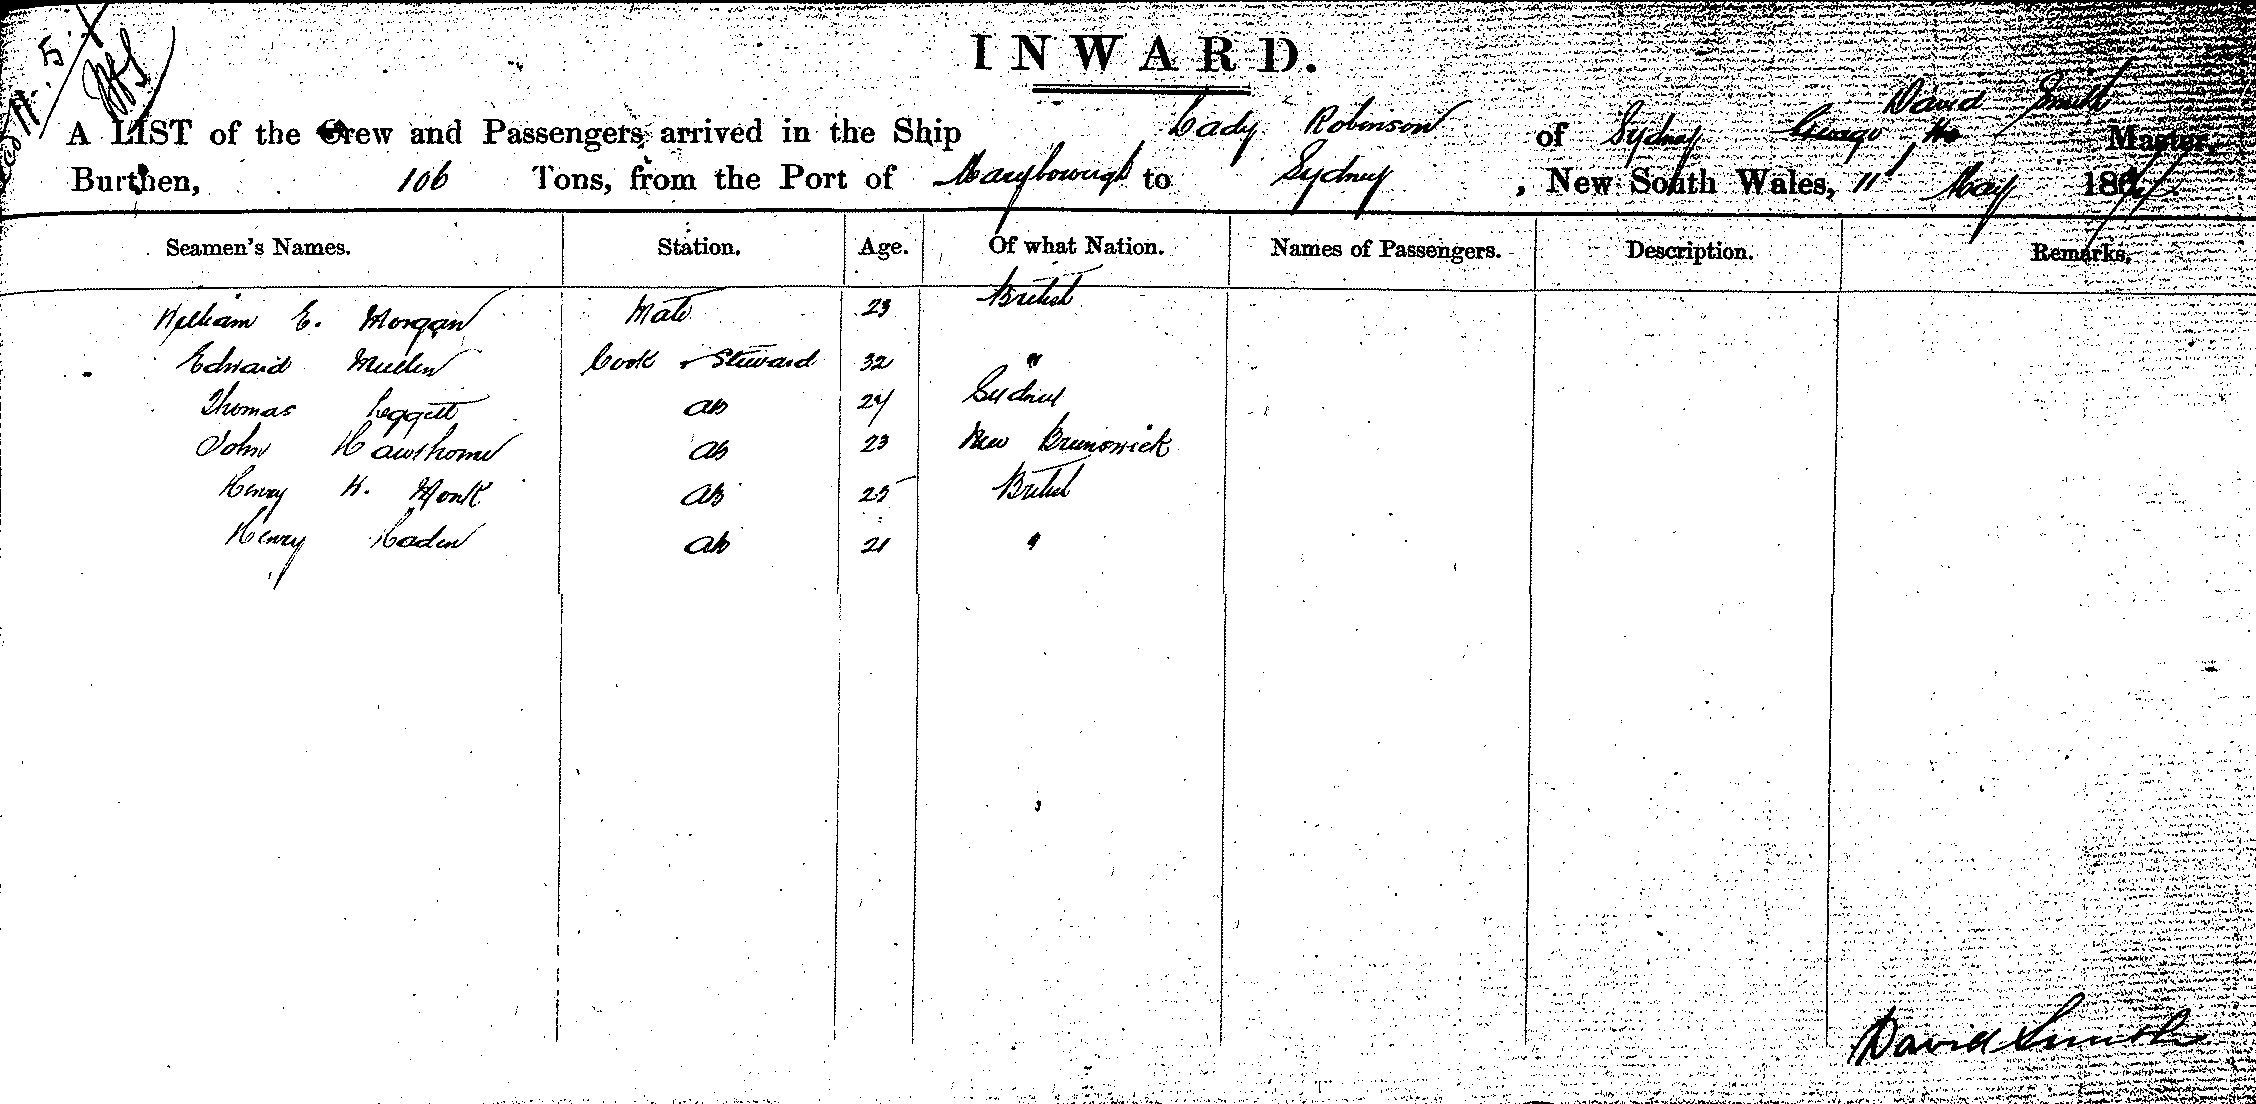 INWARD.
David Smith
A LIST of the Crew and Passengers arrived in the Ship Lady Robinson of Sydney Master,
Burthen, 106 Tons, from the Port of Maryborough to Sydney, New South Wales, 11 May 187
Seamen's Names. Station. Age. Of what Nation. Names of Passengers. Description. Remarks.
William E. Morgan Mate 23 British
Edward Mullen Cook & Steward 32 "
Thomas Leggett AB 24 Sydney
John Hawthorne AB 23 New Brunswick
Henry H. Monk AB 25 British
Henry Haden AB 21 "
David Smith